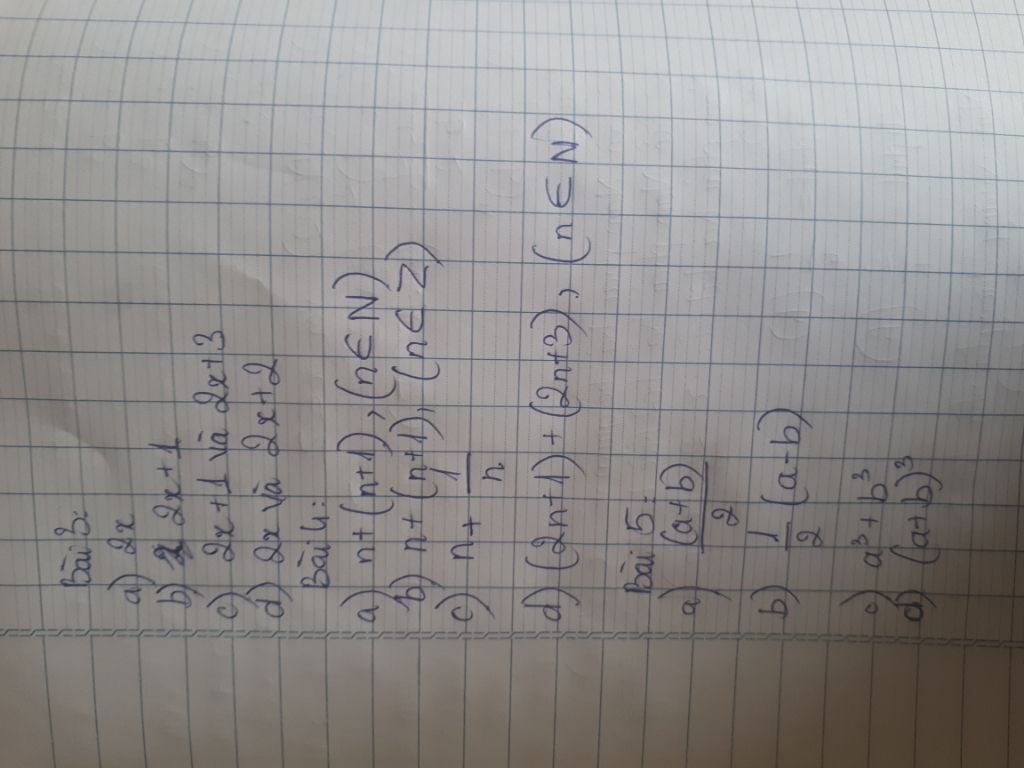 Bài 3:
a) 2x
b) 2x+1
c) 2x+1 và 2x+3
d) 2x và 2x+2
Bài 4:
a) n+(n+1), (n∈N)
b) n+(n+1), (n∈Z)
c) n+ 1/n
d) (2n+1)+(2n+3), (n∈N)
Bài 5:
a) (a+b)/2
b) 1/2 (a-b)
c) a³+b³
d) (a+b)³